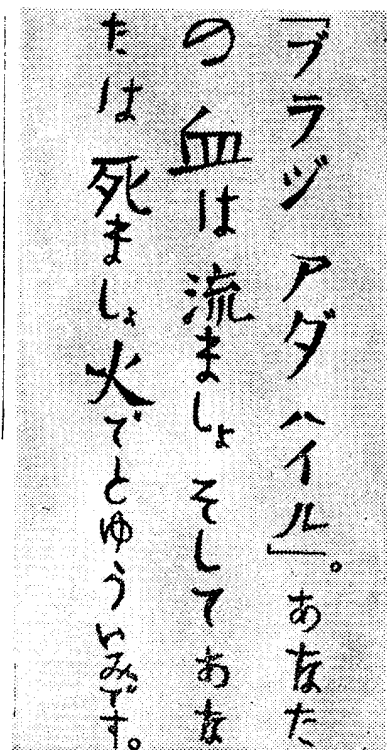 「ブラヅ アダ ハイル」。あなた
の 血は 流ましょ そして あな
たは 死ましょ 火でとゆう いみです。